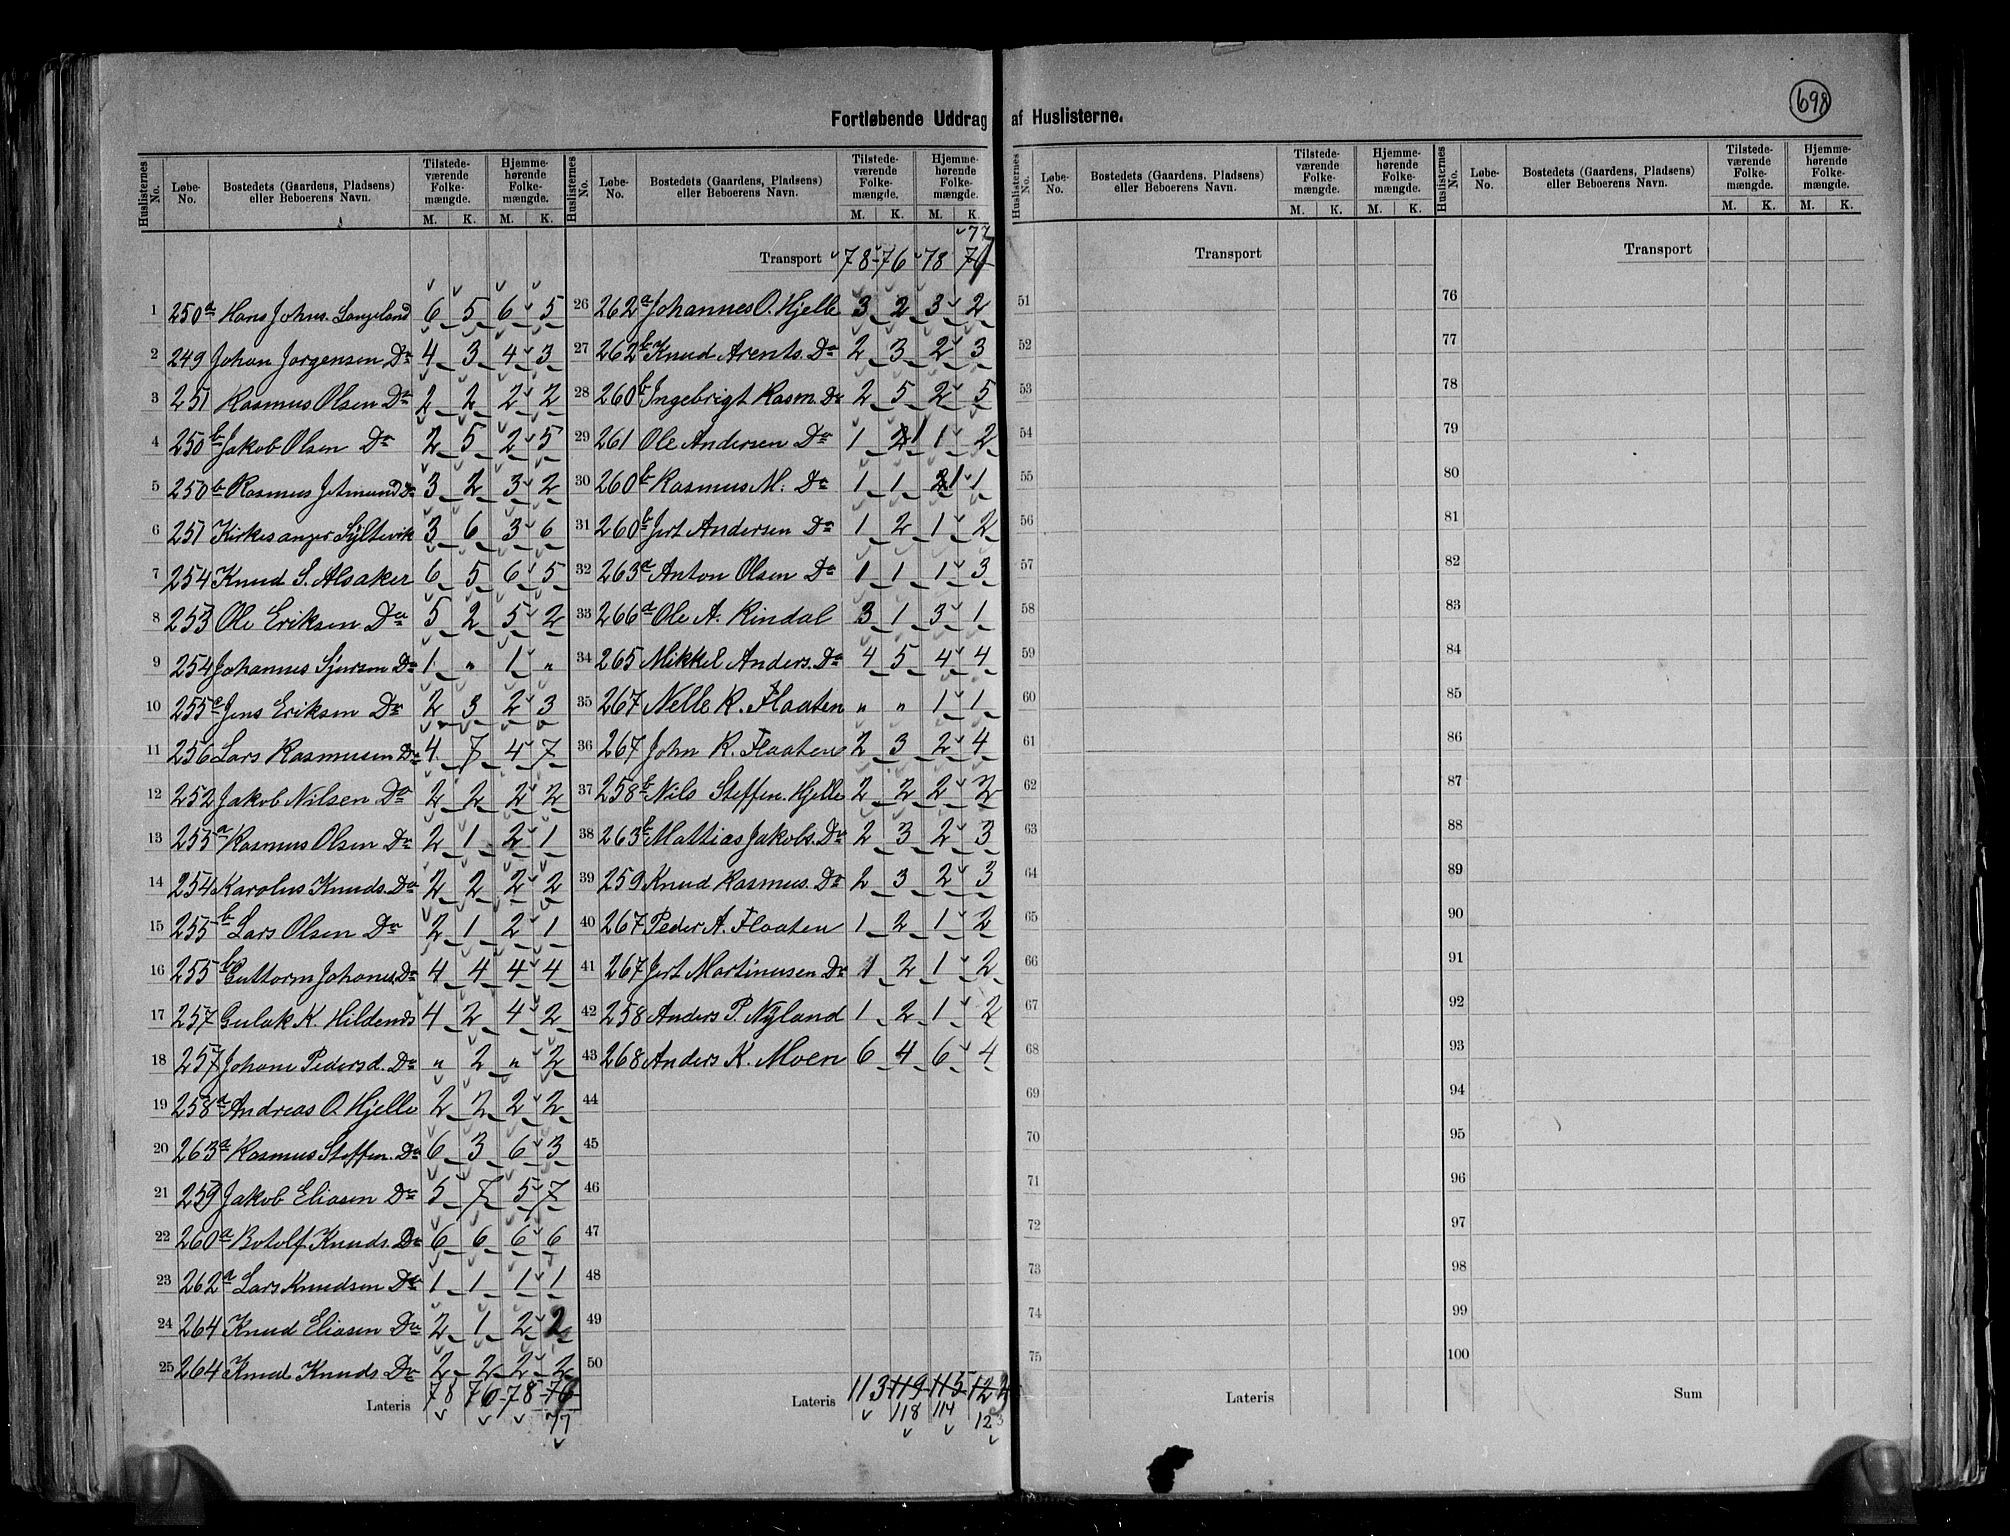 698
Fortløbende Uddrag af Huslisterne.
Huslisternes No. Løbe-No. Bostedets (Gaardens, Pladsens) eller Beboerens Navn. Tilstedeværende Folkemængde. M. K. Hjemmehørende Folkemængde. M. K.
1 250a Hans Johns. Langeland 6 5 6 5
2 249 Johan Jørgensen Do 4 3 4 3
3 251 Rasmus Olsen Do 2 2 2 2
4 250b Jakob Olsen Do 2 5 2 5
5 250b Rasmus Jetmund Do 3 2 3 2
6 251 Kirkesanger Syltevik 3 6 3 6
7 254 Knud S. Alsaker 6 5 6 5
8 253 Ole Eriksen Do 5 2 5 2
9 254 Johannes Sjursen Do 1 " 1 "
10 255 Jens Eriksen Do 2 3 2 3
11 256 Lars Rasmusen Do 4 7 4 7
12 252 Jakob Nilsen Do 2 2 2 2
13 255a Rasmus Olsen Do 2 1 2 1
14 254 Karolus Knuds. Do 2 2 2 2
15 255b Lars Olsen Do 2 1 2 1
16 255b Guttorm Johanes Do 4 4 4 4
17 257 Gulak K. Hildenes 4 2 4 2
18 257 Johane Pedersd. Do " 2 " 2
19 258a Andreas O. Hjelle 2 2 2 2
20 263a Rasmus Steffen. Do 6 3 6 3
21 259 Jakob Eliasen Do 5 7 5 7
22 260a Botolf Knuds. Do 6 6 6 6
23 262a Lars Knudsen Do 1 1 1 1
24 264 Knud Eliasen Do 2 1 2 2
25 264 Knud Knuds Do 2 2 2 2
Lateris 78 76 78 76
77
Huslisternes No. Løbe-No. Bostedets (Gaardens, Pladsens) eller Beboerens Navn. Tilstedeværende Folkemængde. M. K. Hjemmehørende Folkemængde. M. K.
77
Transport 78 76 78 76
26 262a Johannes O. Hjelle 3 2 3 2
27 262b Knud Arents. Do 2 3 2 3
28 260b Ingebrigt Rasm. Do 2 5 2 5
29 261 Ole Andersen Do 1 2 1 1 2
30 260b Rasmus M. Do 1 1 2 1 1
31 260b Jert Andersen Do 1 2 1 2
32 263a Anton Olsen Do 1 1 1 3
33 266a Ole A. Rindal 3 1 3 1
34 265 Mikkel Anders. Do 4 5 4 4
35 267 Nelle R. Flaaten " " 1 1
36 267 John R. Flaaten 2 3 2 4
37 258b Nils Steffen. Hjelle 2 2 2 2
38 263b Mattias Jakobs. Do 2 3 2 3
39 259 Knud Rasmus. Do 2 3 2 3
40 267 Peder A. Flaaten 1 2 1 2
41 267 Jert Martinusen Do 1 2 1 2
42 258 Anders P. Nyland 1 2 1 2
43 268 Anders K. Moen 6 4 6 4
44
45
46
47
48
49
50
Lateris 113 119 115 122
118 114 123
Huslisternes No. Løbe-No. Bostedets (Gaardens, Pladsens) eller Beboerens Navn. Tilstedeværende Folkemængde. M. K. Hjemmehørende Folkemængde. M. K.
Transport
51
52
53
54
55
56
57
58
59
60
61
62
63
64
65
66
67
68
69
70
71
72
73
74
75
Lateris
Huslisternes No. Løbe-No. Bostedets (Gaardens, Pladsens) eller Beboerens Navn. Tilstedeværende Folkemængde. M. K. Hjemmehørende Folkemængde. M. K.
Transport
76
77
78
79
80
81
82
83
84
85
86
87
88
89
90
91
92
93
94
95
96
97
98
99
100
Sum